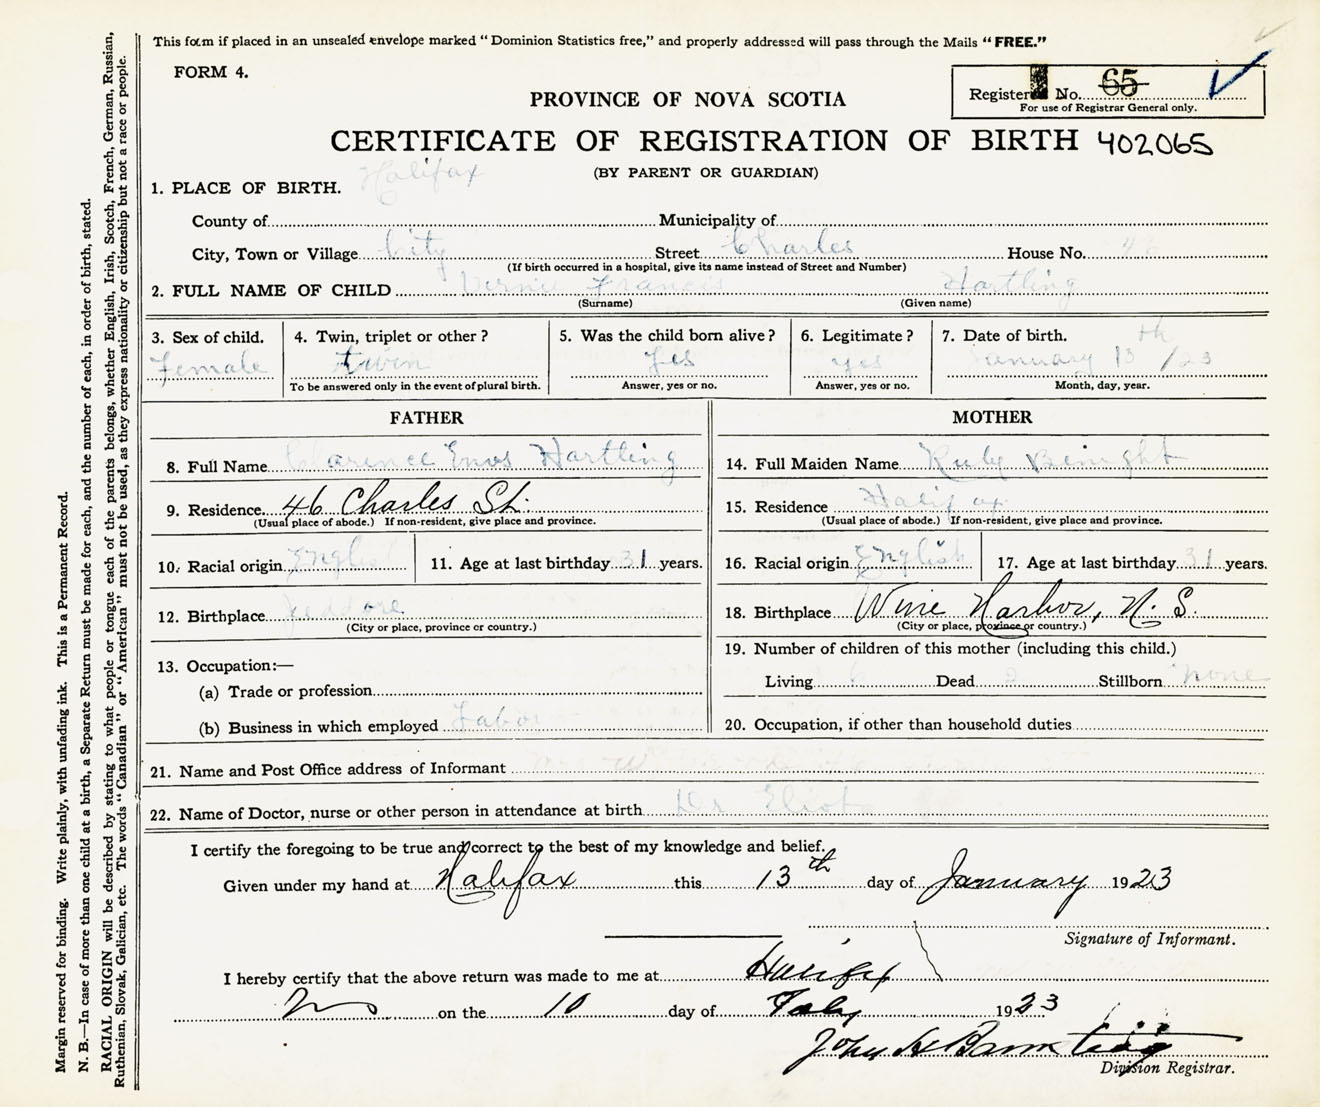 This form if placed in an unsealed envelope marked "Dominion Statistics free," and properly addressed will pass through the Mails "FREE."
FORM 4.
Registered No. 65
For use of Registrar General only.
PROVINCE OF NOVA SCOTIA
CERTIFICATE OF REGISTRATION OF BIRTH 402065
(BY PARENT OR GUARDIAN)
Halifax
1. PLACE OF BIRTH.
County of Municipality of
City, Town or Village City Street Charles House No. 46
(If birth occurred in a hospital, give its name instead of Street and Number)
2. FULL NAME OF CHILD Francis Hartling
(Surname) (Given name)
3. Sex of child. 4. Twin, triplet or other? 5. Was the child born alive? 6. Legitimate? 7. Date of birth.
Female twin Yes yes January 13th /23
To be answered only in the event of plural birth. Answer, yes or no. Answer, yes or no. Month, day, year.
FATHER MOTHER
8. Full Name Clarence Enos Hartling 14. Full Maiden Name Ruby
9. Residence 46 Charles St. 15. Residence Halifax
(Usual place of abode.) If non-resident, give place and province. (Usual place of abode.) If non-resident, give place and province.
10. Racial origin English 11. Age at last birthday 31 years. 16. Racial origin English 17. Age at last birthday 31 years.
12. Birthplace Jeddore 18. Birthplace Wine Harbor, N. S.
(City or place, province or country.) (City or place, province or country.)
13. Occupation:— 19. Number of children of this mother (including this child.)
(a) Trade or profession Living 6 Dead 2 Stillborn none
(b) Business in which employed Labor 20. Occupation, if other than household duties
21. Name and Post Office address of Informant
22. Name of Doctor, nurse or other person in attendance at birth Dr Eliot
I certify the foregoing to be true and correct to the best of my knowledge and belief.
Given under my hand at Halifax this 13th day of January 1923
Signature of Informant.
I hereby certify that the above return was made to me at Halifax
on the 10 day of 1923
John H Barnstead
Division Registrar.
Margin reserved for binding. Write plainly, with unfading ink. This is a Permanent Record.
N. B.—In case of more than one child at a birth, a Separate Return must be made for each, and the number of each, in order of birth, stated.
RACIAL ORIGIN will be described by stating to what people or tongue each of the parents belongs, whether English, Irish, Scotch, French, German, Russian,
Ruthenian, Slovak, Galician, etc. The words "Canadian" or "American" must not be used, as they express nationality or citizenship but not a race or people.